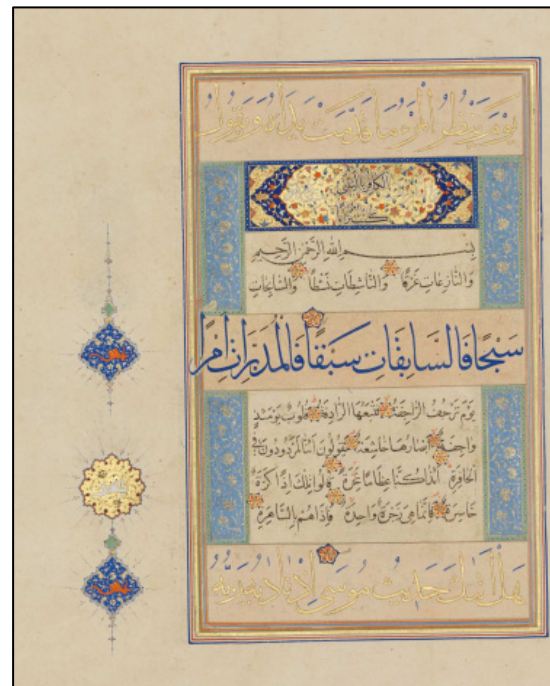 يَوْمَ يَنْظُرُ الْمَرْءُ مَا قَدَّمَتْ يَدَاهُ وَيَقُولُ
الكافر يا ليتني
كنت ترابا
بِسْمِ اللهِ الرَّحْمٰنِ الرَّحِيمِ
وَالنَّازِعَاتِ غَرْقًا وَالنَّاشِطَاتِ نَشْطًا وَالسَّابِحَاتِ
سَبْحًا فَالسَّابِقَاتِ سَبْقًا فَالْمُدَبِّرَاتِ أَمْرًا
يَوْمَ تَرْجُفُ الرَّاجِفَةُ تَتْبَعُهَا الرَّادِفَةُ قُلُوبٌ يَوْمَئِذٍ
وَاجِفَةٌ أَبْصَارُهَا خَاشِعَةٌ يَقُولُونَ أَئِنَّا لَمَرْدُودُونَ فِي
الْحَافِرَةِ أَئِذَا كُنَّا عِظَامًا نَخِرَةً قَالُوا تِلْكَ إِذًا كَرَّةٌ
خَاسِرَةٌ فَإِنَّمَا هِيَ زَجْرَةٌ وَاحِدَةٌ فَإِذَا هُمْ بِالسَّاهِرَةِ
هَلْ أَتٰيكَ حَدِيثُ مُوسٰى إِذْ نَادٰيهُ رَبُّهُ